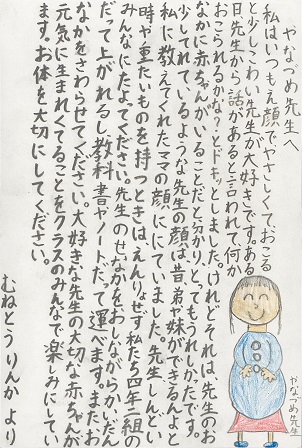 やなづめ先生へ
私はいつもえ顔でやさしくて、おこる
と少しこわい先生が大好きです。ある
日先生から話があると言われて何か
おこられるかな?とドキッとしました。けれどそれは先生のお
なかに赤ちゃんがいることだと分かり、とってもうれしかったです。
少してれているような先生の顔は、昔、弟や妹ができるんよ、と
私に教えてくれたママの顔ににていました。先生、しんどい
時や重たいものを持つときは、えんりょせず私たち四年二組の
みんなにたよってください。先生のせなかをおしながらかいだん
だって上がれるし、教科書やノートだって運べます。また、お
なかをさわらせてください。大好きな先生の大切な赤ちゃんが
元気に生まれてくることをクラスのみんなで楽しみにしてい
ます。お体を大切にしてください。
むねとうりんかより
やなづめ先生